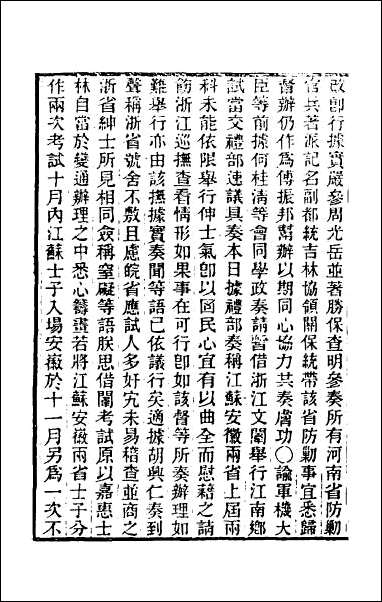 改卽行據實嚴參周光岳並著勝保查明參奏所有河南省防勦
官兵著派記名副都統吉林協領關保統帶該省防勦事宜悉歸
督辦仍作爲傅振邦幫辦以期同心協力共奏膚功〇諭軍機大
臣等前據何桂淸等會同學政奏請暫借浙江文闈舉行江南鄉
試當交禮部速議具奏本日據禮部奏稱江蘇安徽兩省上屆兩
科未能依限舉行伸士氣卽以固民心宜有以曲全而慰藉之請
飭浙江巡撫查看情形如果事在可行卽如該督等所奏辦理如
難舉行亦由該撫據實奏聞等語已依議行矣適據胡興仁奏到
聲稱浙省號舍不敷且慮皖省應試人多奸宄未易稽查並商之
浙省紳士所見相同僉稱窒礙等語朕思借闈考試原以嘉惠士
林自當於變通辦理之中悉心籌畫若將江蘇安徽兩省士子分
作兩次考試十月內江蘇士子入場安徽於十一月另爲一次不